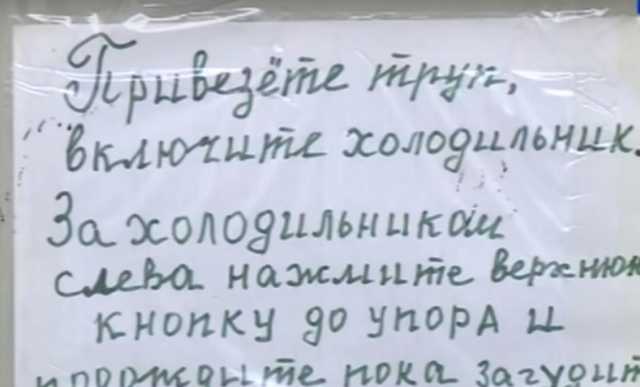 Привезёте труп,
включите холодильник.
За холодильником
слева нажмите верхнюю
кнопку до упора и
подождите пока загудит